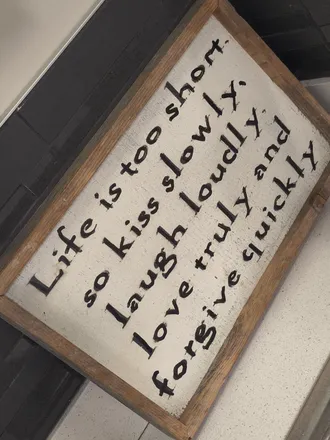 Life is too short.
so kiss slowly,
laugh loudly.
love truly and
forgive quickly